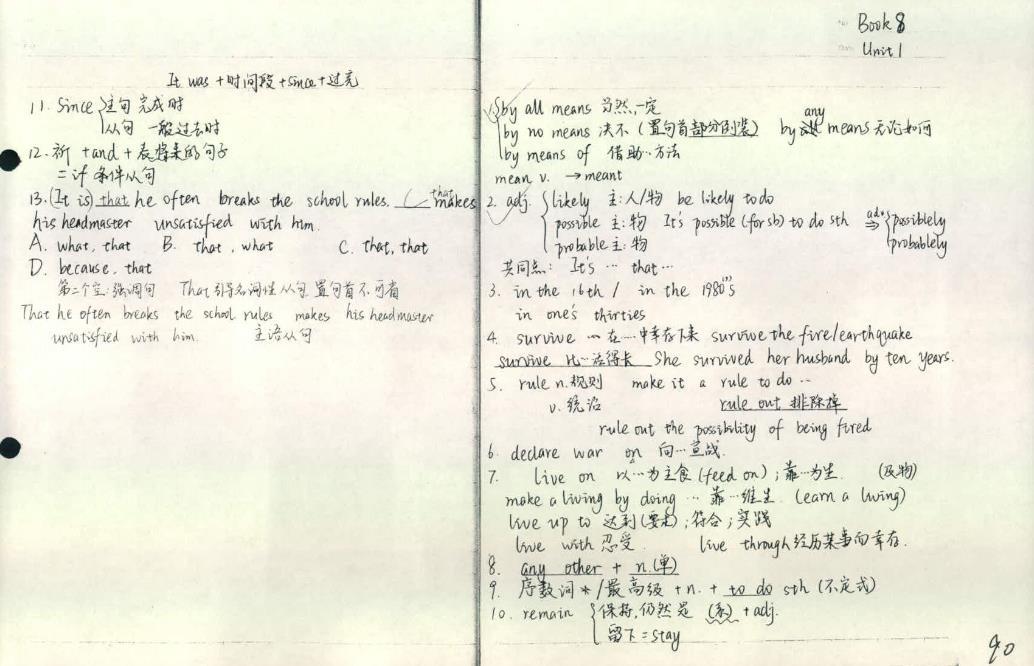 It was +时间段+since+过完
11. Since 主句 完成时
从句 一般过去时
12. 祈 +and +表将来的句子
= if 条件从句
13. (It is) that he often breaks the school rules. that makes
his headmaster unsatisfied with him.
A. what, that B. that, what C. that, that
D. because, that
第二个空:强调句 That引导名词性从句置句首不可省
That he often breaks the school rules makes his headmaster
unsatisfied with him. 主语从句
Book 8
Unit 1
1. by all means 当然,一定
by no means 决不 (置句首部分倒装) by any means 无论如何
by means of 借助…方法
mean v. → meant
2. adj. likely 主:人/物 be likely to do
possible 主:物 It's possible (for sb) to do sth ⇒ adv. possiblely
probable 主:物 probablely
共同点: It's … that …
3. in the 16th / in the 1980(')s
in one's thirties
4. survive … 在…中幸存下来 survive the fire/earthquake
survive 比…活得长 She survived her husband by ten years.
5. rule n.规则 make it a rule to do …
v. 统治 rule out 排除掉
rule out the possibility of being fired
6. declare war on 向…宣战.
7. live on 以…为主食 (feed on) ; 靠…为生. (及物)
make a living by doing … 靠…维生. (earn a living)
live up to 达到(要求) ;符合;实践
live with 忍受. live through 经历某事而幸存.
8. any other + n.(单)
9. 序数词 * /最高级 +n. + to do sth (不定式)
10. remain 保持,仍然是 (系) + adj.
留下 = stay
90